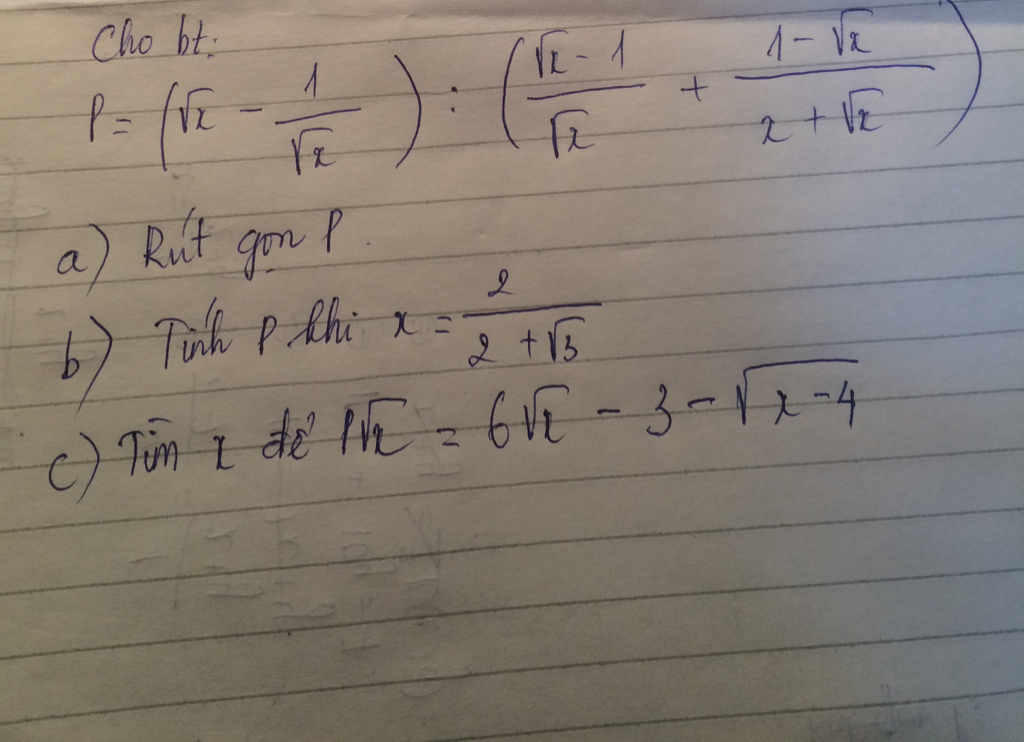 Cho bt:
P = (√x - 1/√x) : ((√x - 1)/√x + (1 - √x)/(x + √x))
a) Rút gọn P.
b) Tính P khi x = 2/(2 + √3)
c) Tìm x để P√x = 6√x - 3 - √(x - 4)